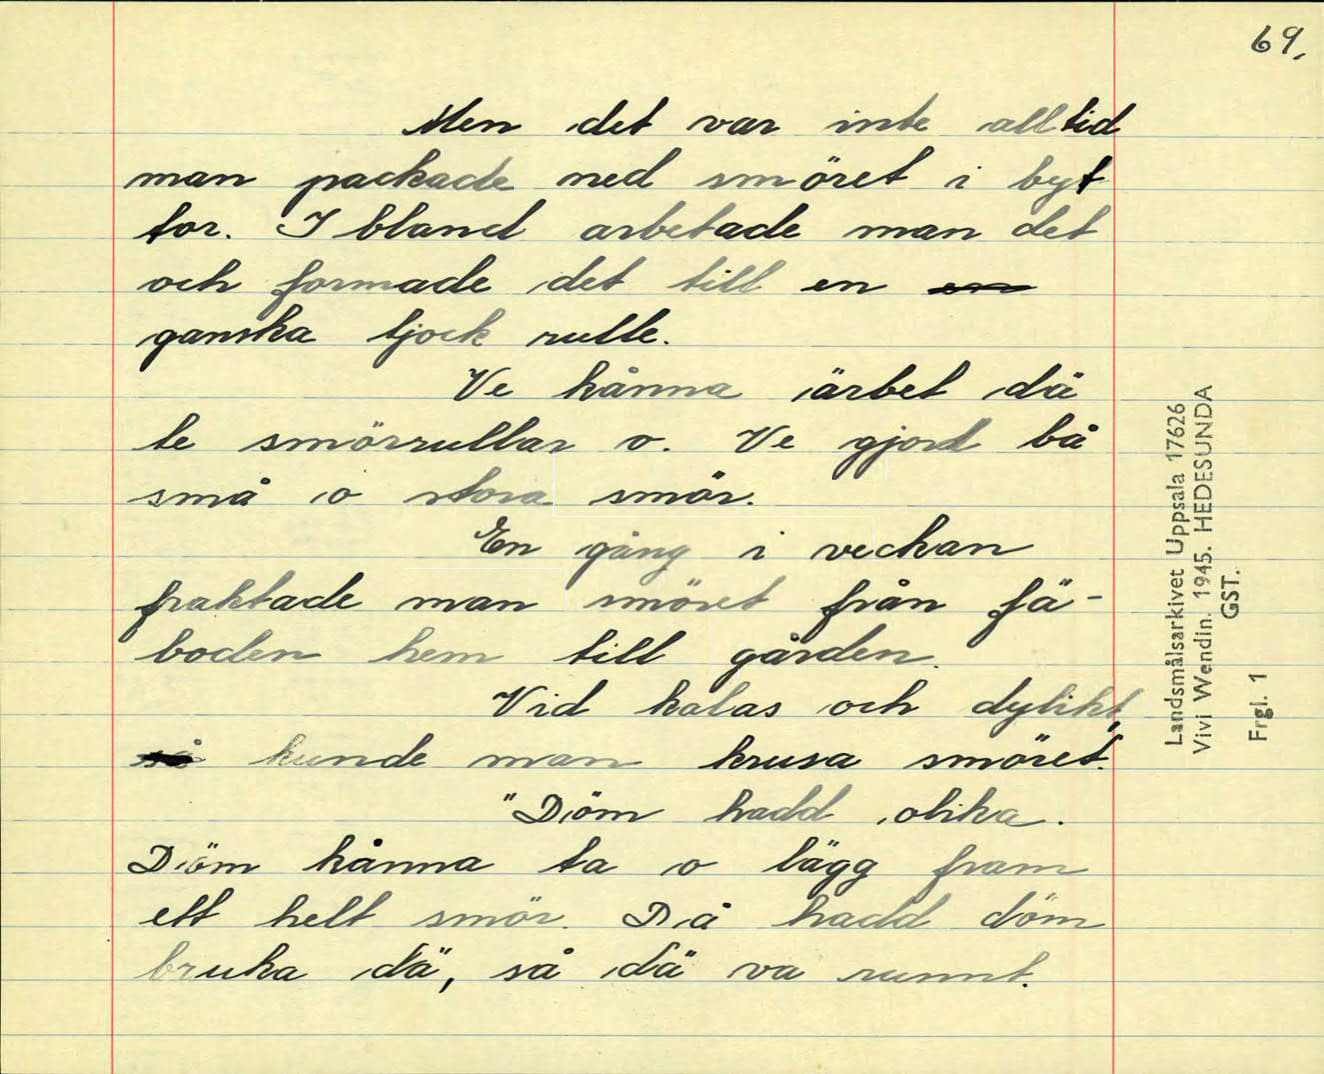 69.
Men det var inte alltid
man packade ned smöret i byt
tor. Ibland arbetade man det
och formade det till en en
ganska tjock rulle.
Ve kånna ärbet dä
te smörrullar o. Ve gjord bå
små o stora smör.
En gång i veckan
fraktade man smöret från fä-
boden hem till gården.
Vid kalas och dylikt,
så kunde man krusa smöret.
"Döm hadd olika.
Döm kånna ta o lägg fram
ett helt smör. Då hadd döm
bruka dä, så dä va runnt.
Landsmålsarkivet Uppsala 17626
Vivi Wendin. 1945. HEDESUNDA
GST.
Frgl. 1